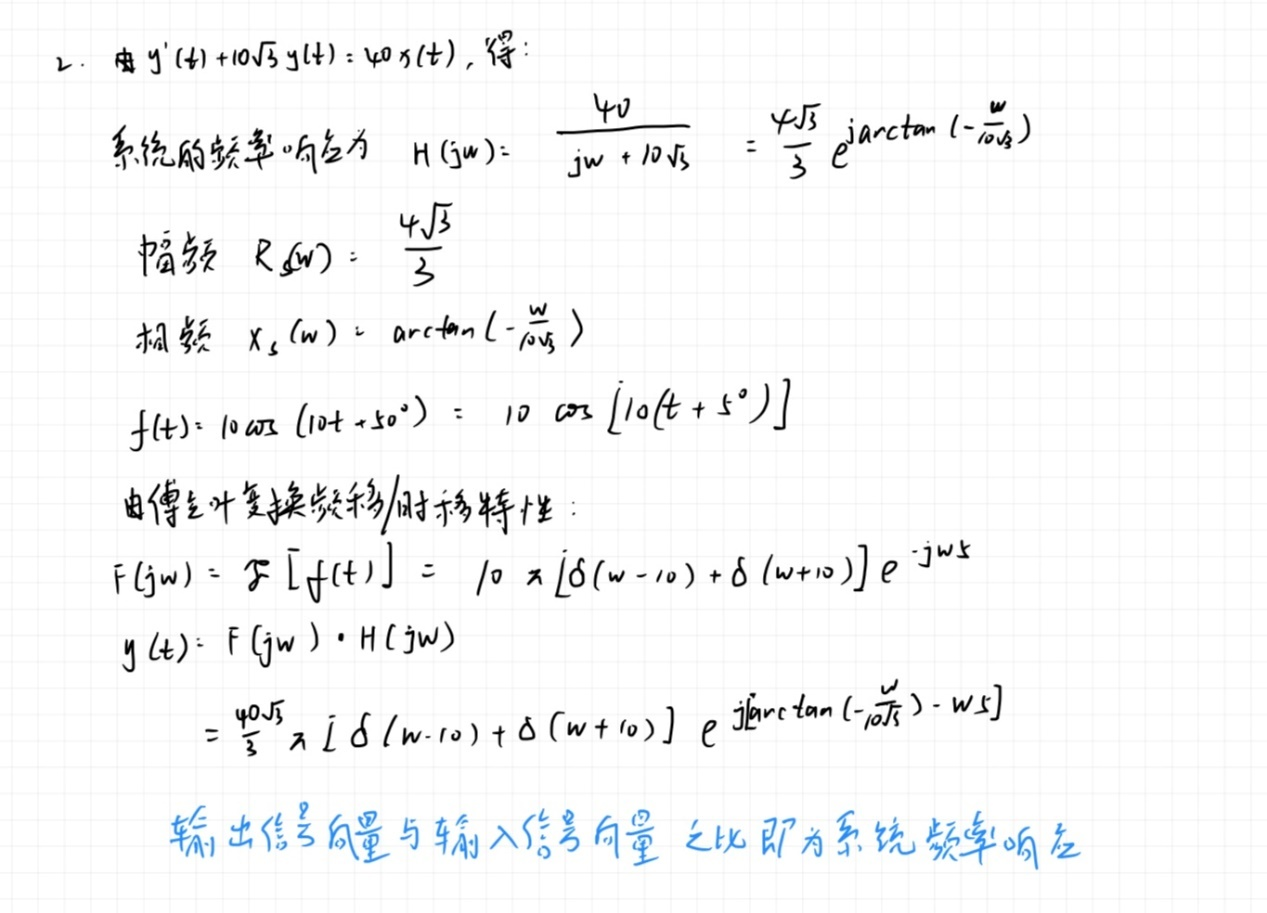 2. 由 y'(t) + 10√3 y(t) = 40x(t), 得:
系统的频率响应为 H(jw) = 40/(jw + 10√3) = 4√3/3 e^{jarctan(-w/10√3)}
幅频 R_s(w) = 4√3/3
相频 X_s(w) = arctan(-w/10√3)
f(t) = 10cos(10t+50°) = 10 cos[10(t+5°)]
由傅立叶变换频移/时移特性:
F(jw) = ℱ[f(t)] = 10π[δ(w-10) + δ(w+10)] e^{-jw5}
y(t) = F(jw)·H(jw)
= 40√3/3 π[δ(w-10) + δ(w+10)] e^{j[arctan(-w/10√3) - w5]}
输出信号向量与输入信号向量之比即为系统频率响应